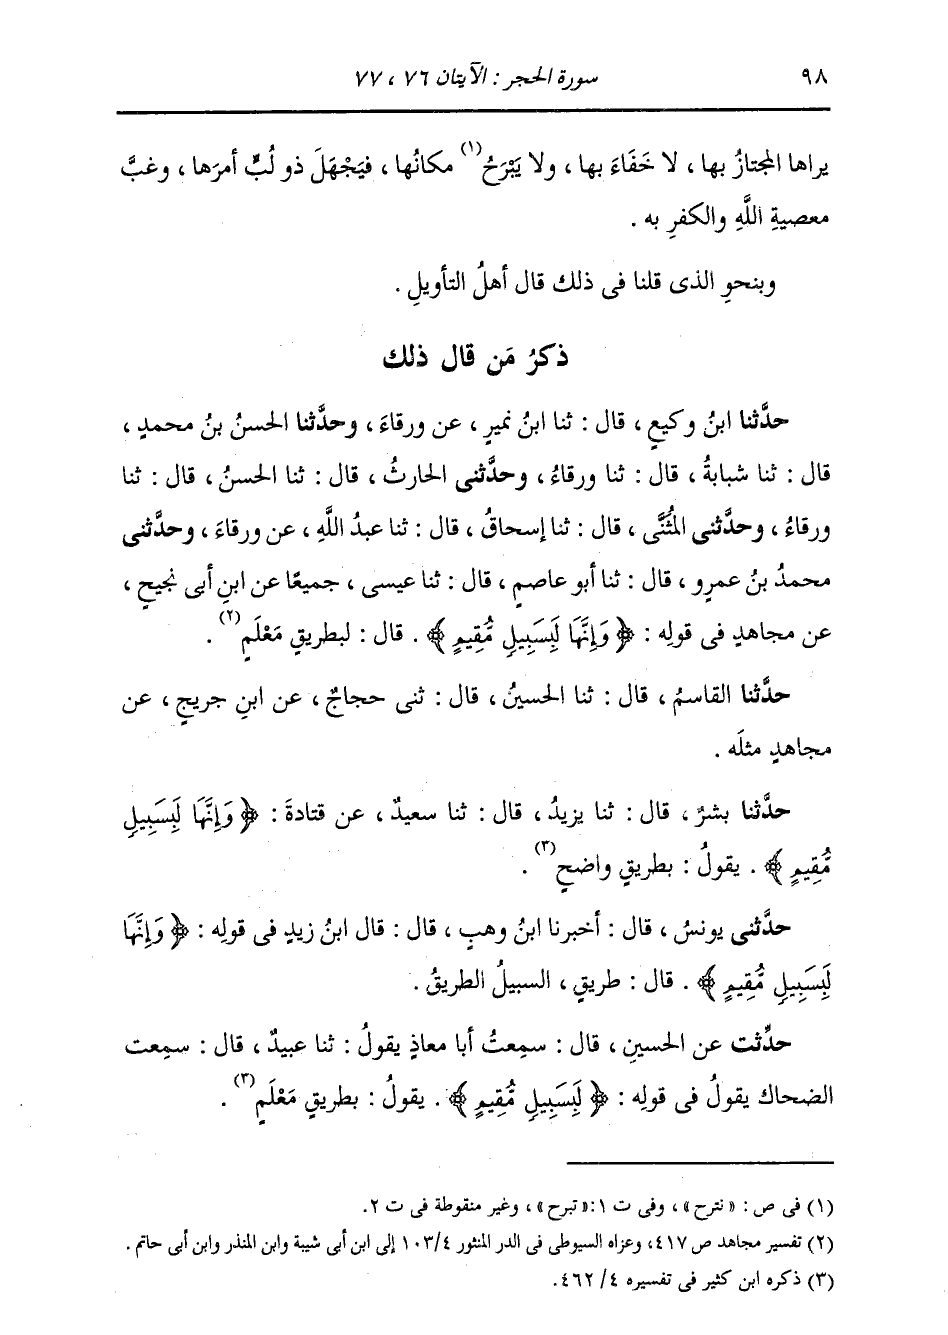 ٩٨ سورة الحجر : الآيتان ٧٦ ، ٧٧
يراها المجتازُ بها ، لا خَفَاءَ بها ، ولا يَبْرَحُ(١) مكانُها ، فيَجْهَلَ ذو لُبٍّ أمرَها ، وغبَّ
معصيةِ اللَّهِ والكفرِ به .
وبنحوِ الذى قلنا فى ذلك قال أهلُ التأويلِ .
ذكرُ مَن قال ذلك
حدَّثنا ابنُ وكيعٍ ، قال : ثنا ابنُ نميرٍ ، عن ورقاءَ ، وحدَّثنا الحسنُ بنُ محمدٍ ،
قال : ثنا شبابةُ ، قال : ثنا ورقاءُ ، وحدَّثنى الحارثُ ، قال : ثنا الحسنُ ، قال : ثنا
ورقاءُ ، وحدَّثنى المُثَنَّى ، قال : ثنا إسحاقُ ، قال : ثنا عبدُ اللَّهِ ، عن ورقاءَ ، وحدَّثنى
محمدُ بنُ عمرٍو ، قال : ثنا أبو عاصمٍ ، قال : ثنا عيسى ، جميعًا عن ابنِ أبى نجيحٍ ،
عن مجاهدٍ فى قولِه : ﴿ وَإِنَّهَا لَبِسَبِيلٍ مُّقِيمٍ ﴾ . قال : لبطريقٍ مَعْلَمٍ(٢) .
حدَّثنا القاسمُ ، قال : ثنا الحسينُ ، قال : ثنى حجاجٌ ، عن ابنِ جريجٍ ، عن
مجاهدٍ مثلَه .
حدَّثنا بشرٌ ، قال : ثنا يزيدُ ، قال : ثنا سعيدٌ ، عن قتادةَ : ﴿ وَإِنَّهَا لَبِسَبِيلٍ
مُّقِيمٍ ﴾ . يقولُ : بطريقٍ واضحٍ(٣) .
حدَّثنى يونسُ ، قال : أخبرنا ابنُ وهبٍ ، قال : قال ابنُ زيدٍ فى قولِه : ﴿ وَإِنَّهَا
لَبِسَبِيلٍ مُّقِيمٍ ﴾ . قال : طريقٍ ، السبيلُ الطريقُ .
حدِّثت عن الحسينِ ، قال : سمِعتُ أبا معاذٍ يقولُ : ثنا عبيدٌ ، قال : سمِعت
الضحاك يقولُ فى قولِه : ﴿ لَبِسَبِيلٍ مُّقِيمٍ ﴾ . يقولُ : بطريقٍ مَعْلَمٍ(٣) .
(١) فى ص : « نترح » ، وفى ت ١ : « تبرح » ، وغير منقوطة فى ت ٢ .
(٢) تفسير مجاهد ص ٤١٧، وعزاه السيوطى فى الدر المنثور ١٠٣/٤ إلى ابن أبى شيبة وابن المنذر وابن أبى حاتم .
(٣) ذكره ابن كثير فى تفسيره ٤/ ٤٦٢ .